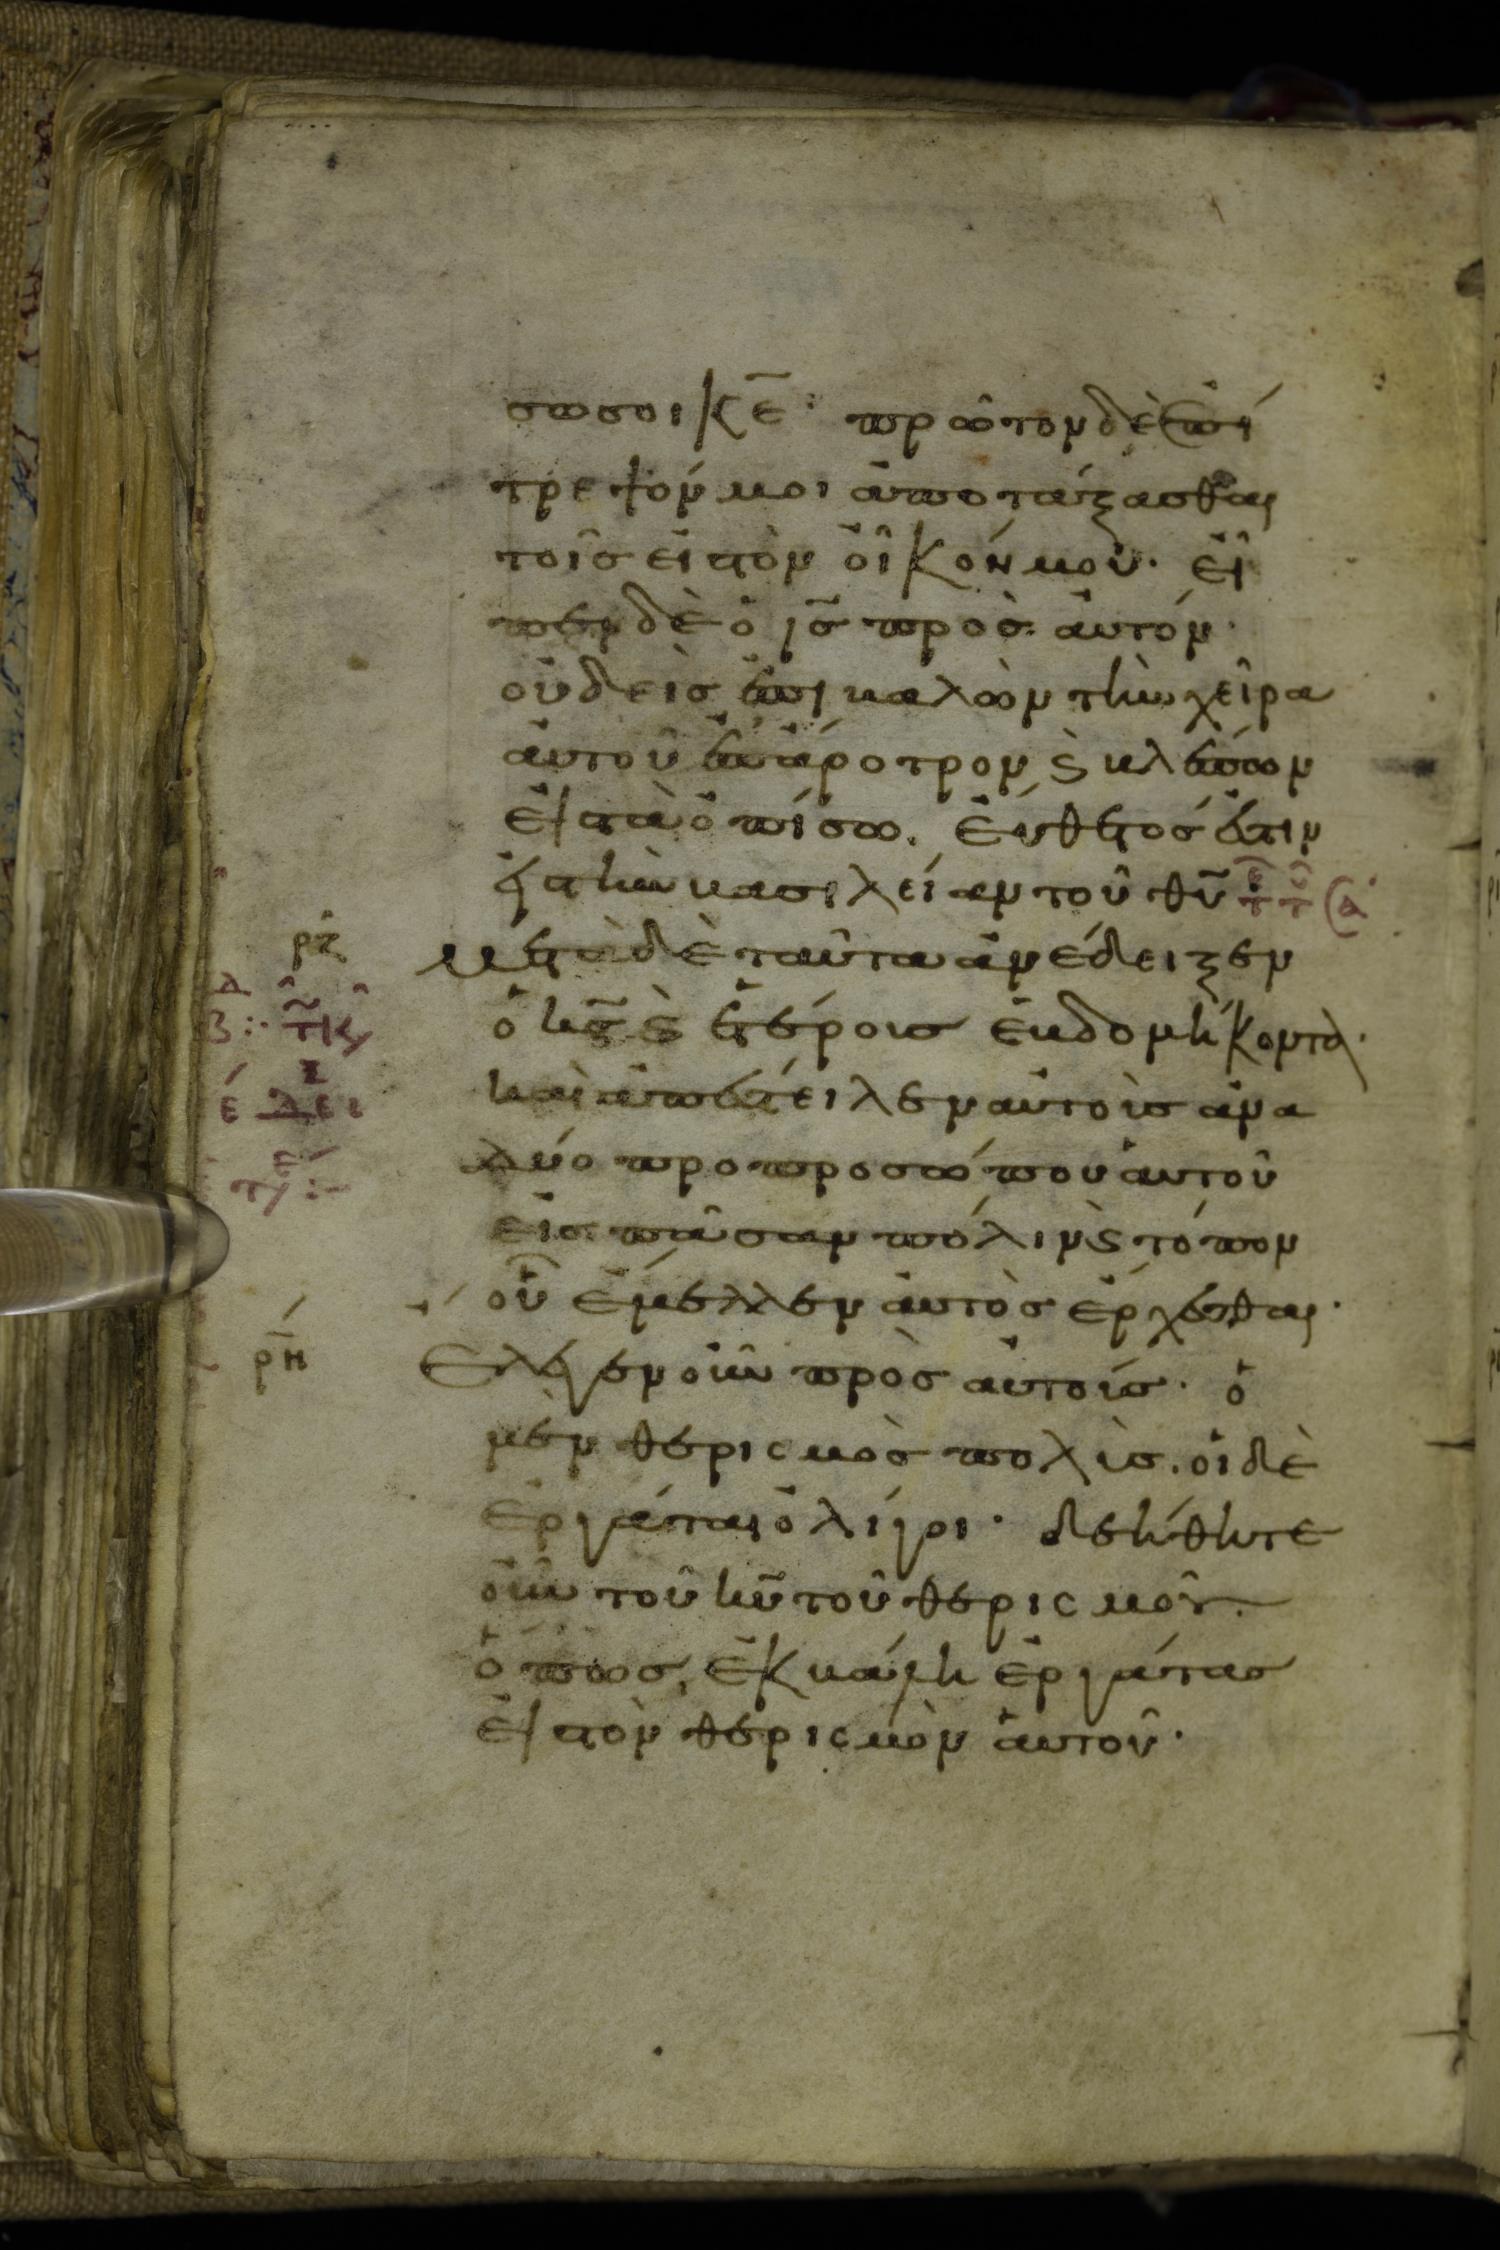 σω σοι κε̅· πρῶτον δὲ ἐπί
τρεψόν μοι ἀποτάξασθαι
τοῖς εἰς τὸν οἶκόν μου· εἶ
πεν δὲ ὁ ις̅ πρὸς αὐτόν·
οὐδεὶς ἐπιβαλὼν τὴν χεῖρα
αὐτοῦ ἐπ' ἄροτρον ϛ βλέπων
εἰς τὰ ὀπίσω, εὔθετός ἐστιν
εἰς τὴν βασιλείαν τοῦ θυ̅
ρζ
μετὰ δὲ ταῦτα ἀνέδειξεν
ὁ κς̅ ϛ ἑτέροις ἑβδομήκοντα·
καὶ ἀπέστειλεν αὐτοὺς ἀνα
δύο πρὸ προσώπου αὐτοῦ
εἰς πᾶσαν πόλιν ϛ τόπον
οὗ ἔμελλεν αὐτὸς ἔρχεσθαι·
ρη
Ἔλεγεν οὖν πρὸς αὐτούς· ὁ
μὲν θερισμὸς πολὺς. οἱ δὲ
ἐργάται ὀλίγοι· δεήθητε
οὖν τοῦ κυ̅ τοῦ θερισμοῦ.
ὅπως ἐκβάλη ἐργάτας
εἰς τὸν θερισμὸν αὐτοῦ·